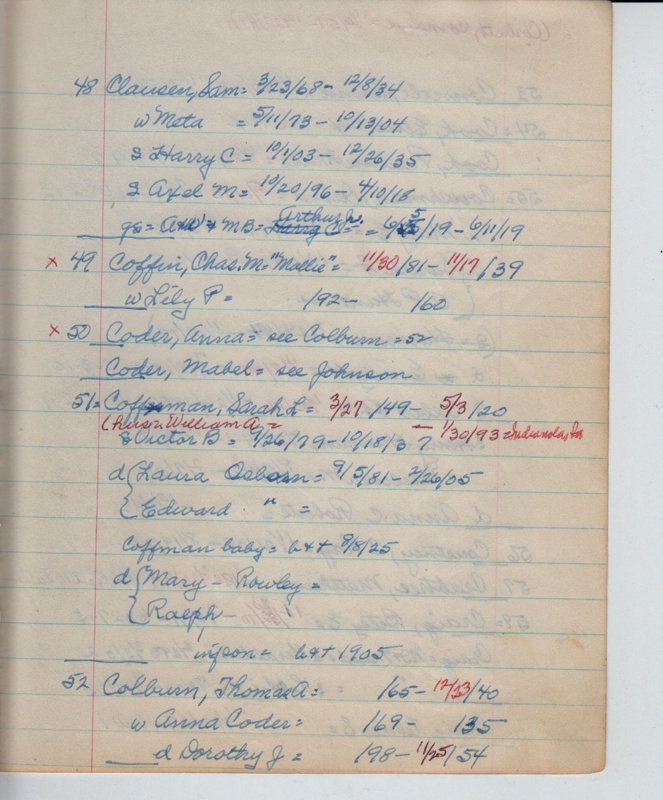 48 Clausen, Sam = 3/23/68 - 12/8/34
w Meta = 5/11/73 - 10/13/04
s Harry C = 10/1/03 - 12/26/35
s Axel M = 10/20/96 - 4/10/18
gs = + MB = Arthur = 6/ 5/19 - 6/11/19
x 49 Coffin, Chas. M = "Mollie" = 11/30/81 - 11/17/39
w Lily P = /92 - /60
x 50 Coder, Anna = see Colburn = 52
Coder, Mabel = see Johnson
51 = Coffman, Sarah L = 3/27/49 - 5/3/20
(hus = William A, = - 1/30/93 = Indianola, Ia
s Victor B = 9/26/79 - 10/18/37
d { Laura Osborn = 9/5/81 - 2/26/05
{ Edward " =
Coffman baby = b & d 9/8/25
d { Mary - Rowley =
{ Ralph - "
inf son = b & d 1905
52 Colburn, Thomas A = /65 - 12/23/40
w Anna Coder = /69 - /35
d Dorothy J = /98 - 11/25/54